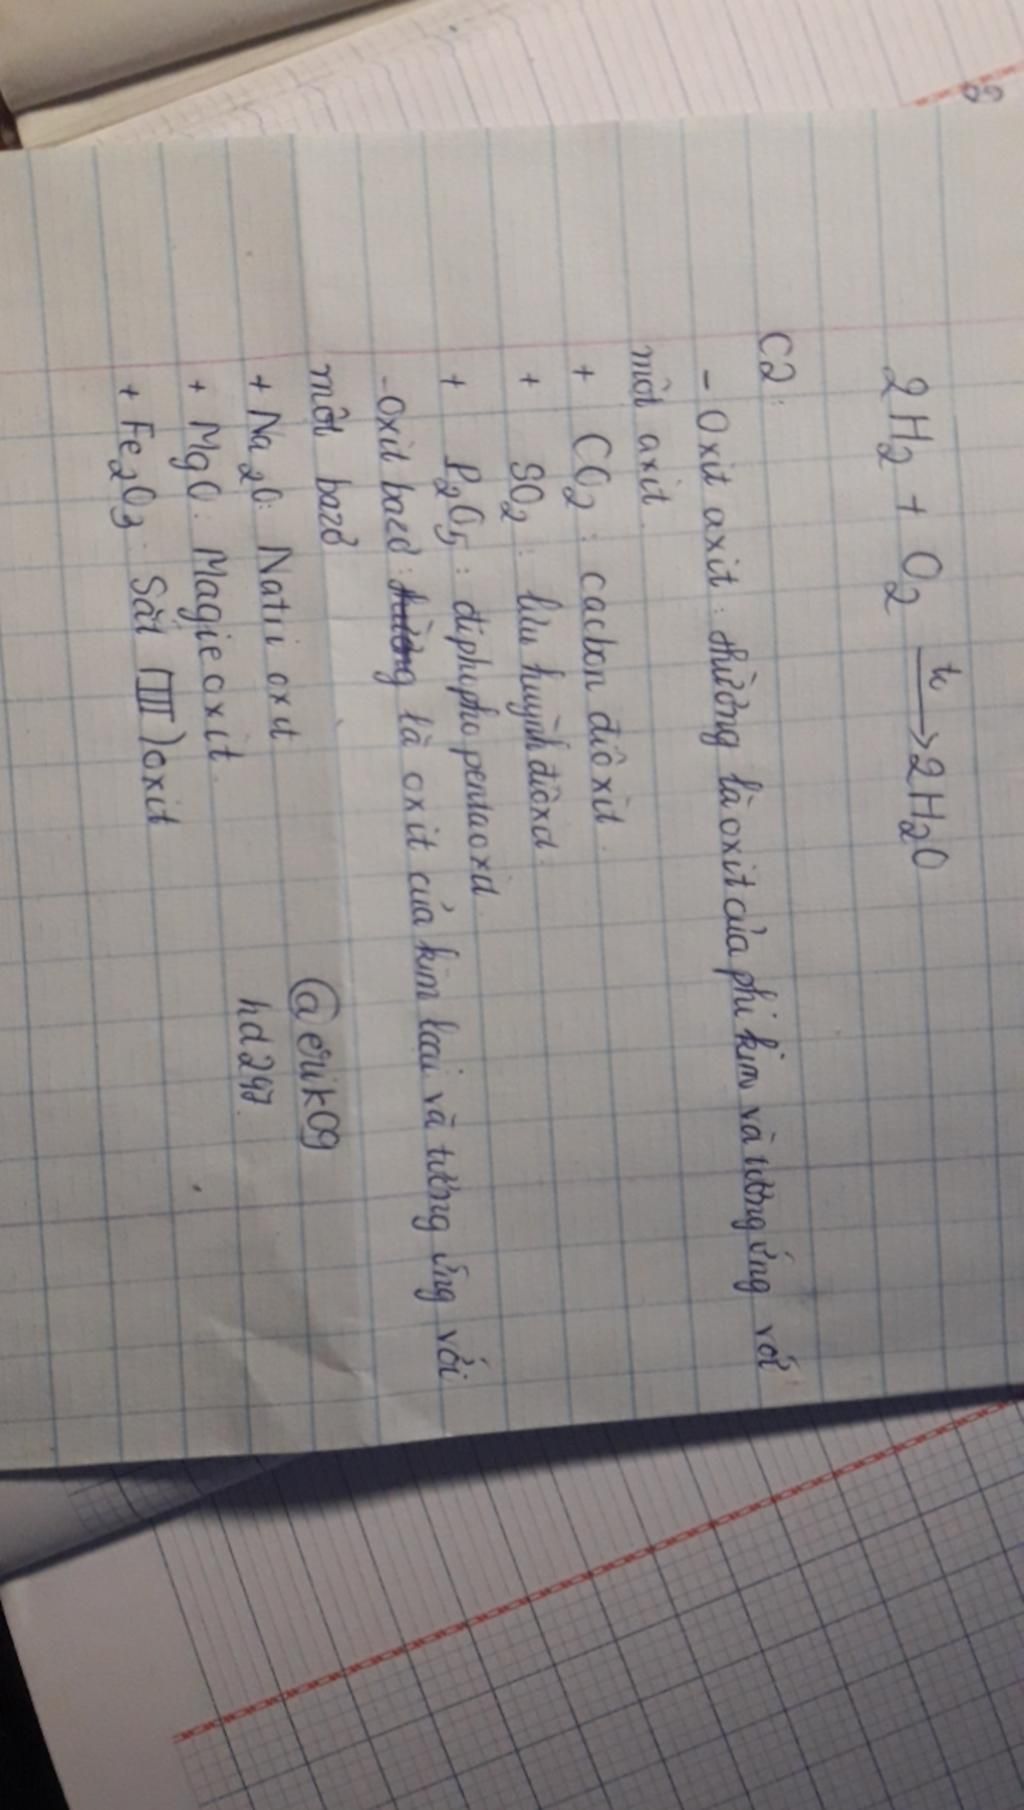 2H2 + O2 t° → 2H2O
C2:
- Oxit axit: thường là oxit của phi kim và tương ứng với
một axit.
+ CO2: cacbon điôxit.
+ SO2: lưu huỳnh điôxit.
+ P2O5: điphôtpho pentaoxit.
- Oxit bazơ: là oxit của kim loại và tương ứng với
một bazơ
+ Na2O: Natri oxit
+ MgO: Magie oxit.
+ Fe2O3: Sắt (III) oxit
@erik09
hd247.